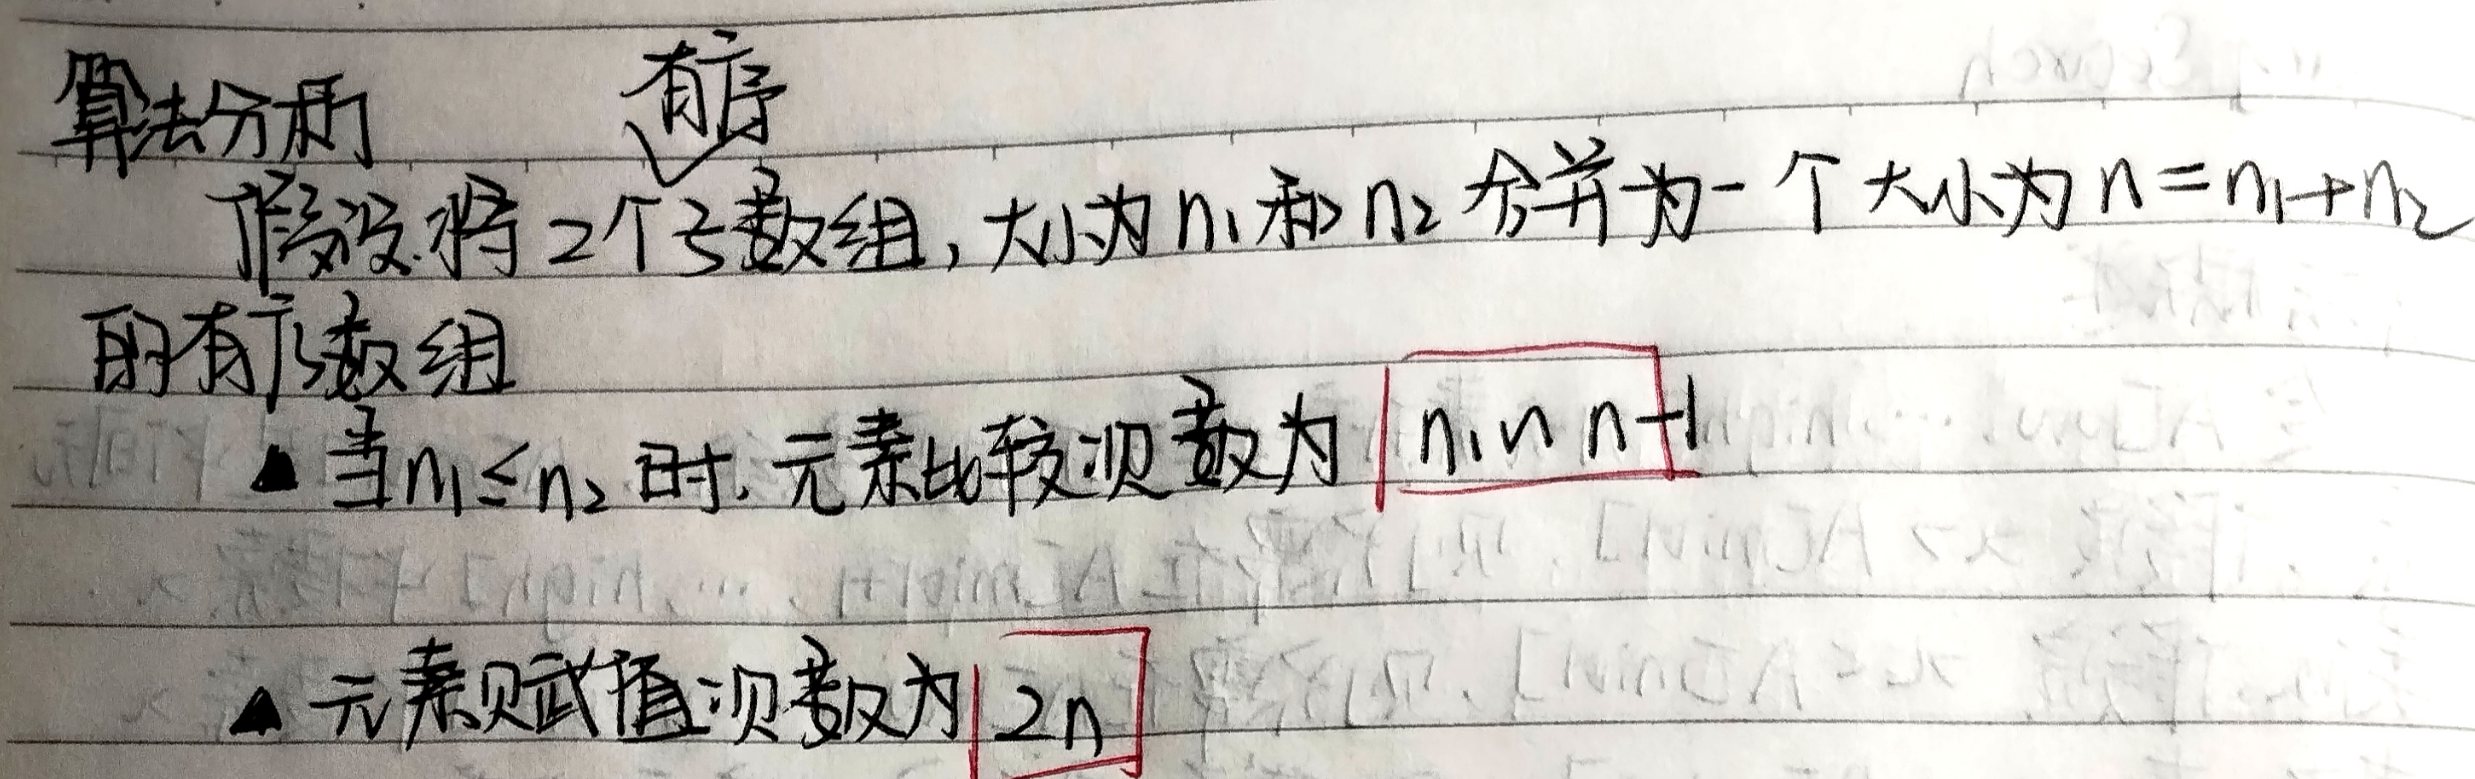 算法分析
有序
假设将2个子数组,大小为n₁和n₂合并为一个大小为n=n₁+n₂
的有序数组
▲ 当n₁≤n₂时,元素比较次数为 n₁~n-1
▲ 元素赋值次数为 2n